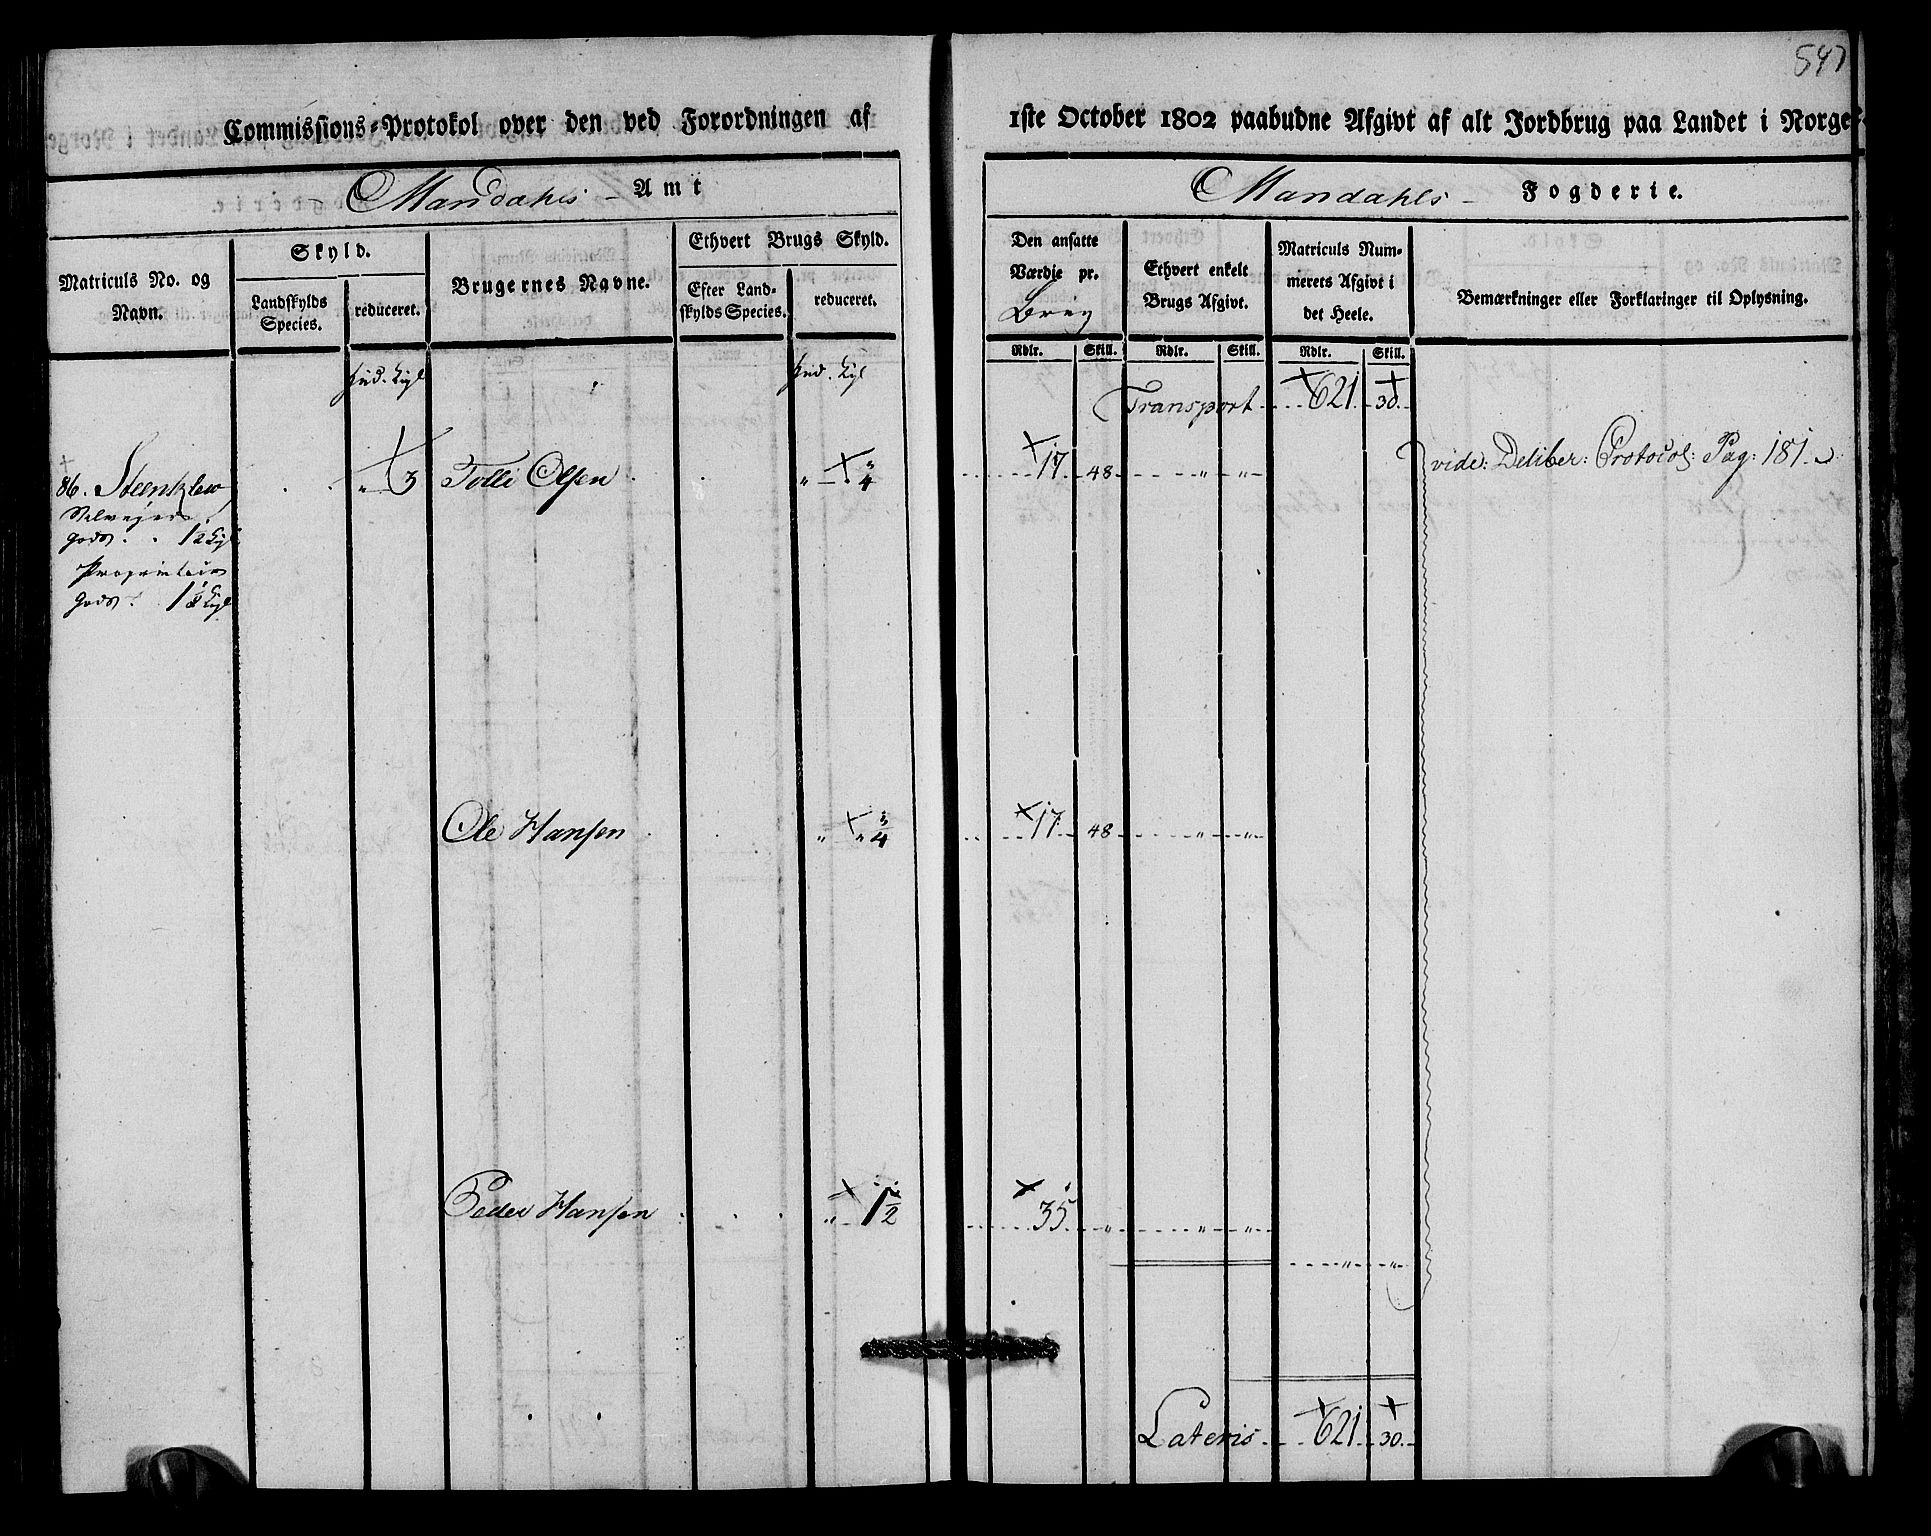 547
Commissions-Protokol over den ved Forordningen af 1ste October 1802 paabudne Afgivt af alt Jordbrug paa Landet i Norge.
Mandahls Amt
Mandahls Fogderie.
Matriculs No. og Navn.
Skyld.
Landskylds Species.
reduceret.
Brugernes Navne.
Ethvert Brugs Skyld.
Efter Landskylds Species.
reduceret.
Den ansatte Værdie pr. Brug
Ethvert enkelt Brugs Afgivt.
Matriculs Nummerets Afgivt i det Heele.
Bemærkninger eller Forklaringer til Oplysning.
Rdlr. Skill. Rdlr. Skill. Rdlr. Skill.
Transport 621 30
86. Steenklew 3 Tolle Olsen 3/4 17 48 " " vide: Deliber: Protocol: Pag: 181.
Selvejer
gods . . 1 2
Proprietair
gods .
Ole Hansen " " 3/4 17 48 " "
Peder Hansen " 1 1/2 35 " " "
" "
Lateris 621 30